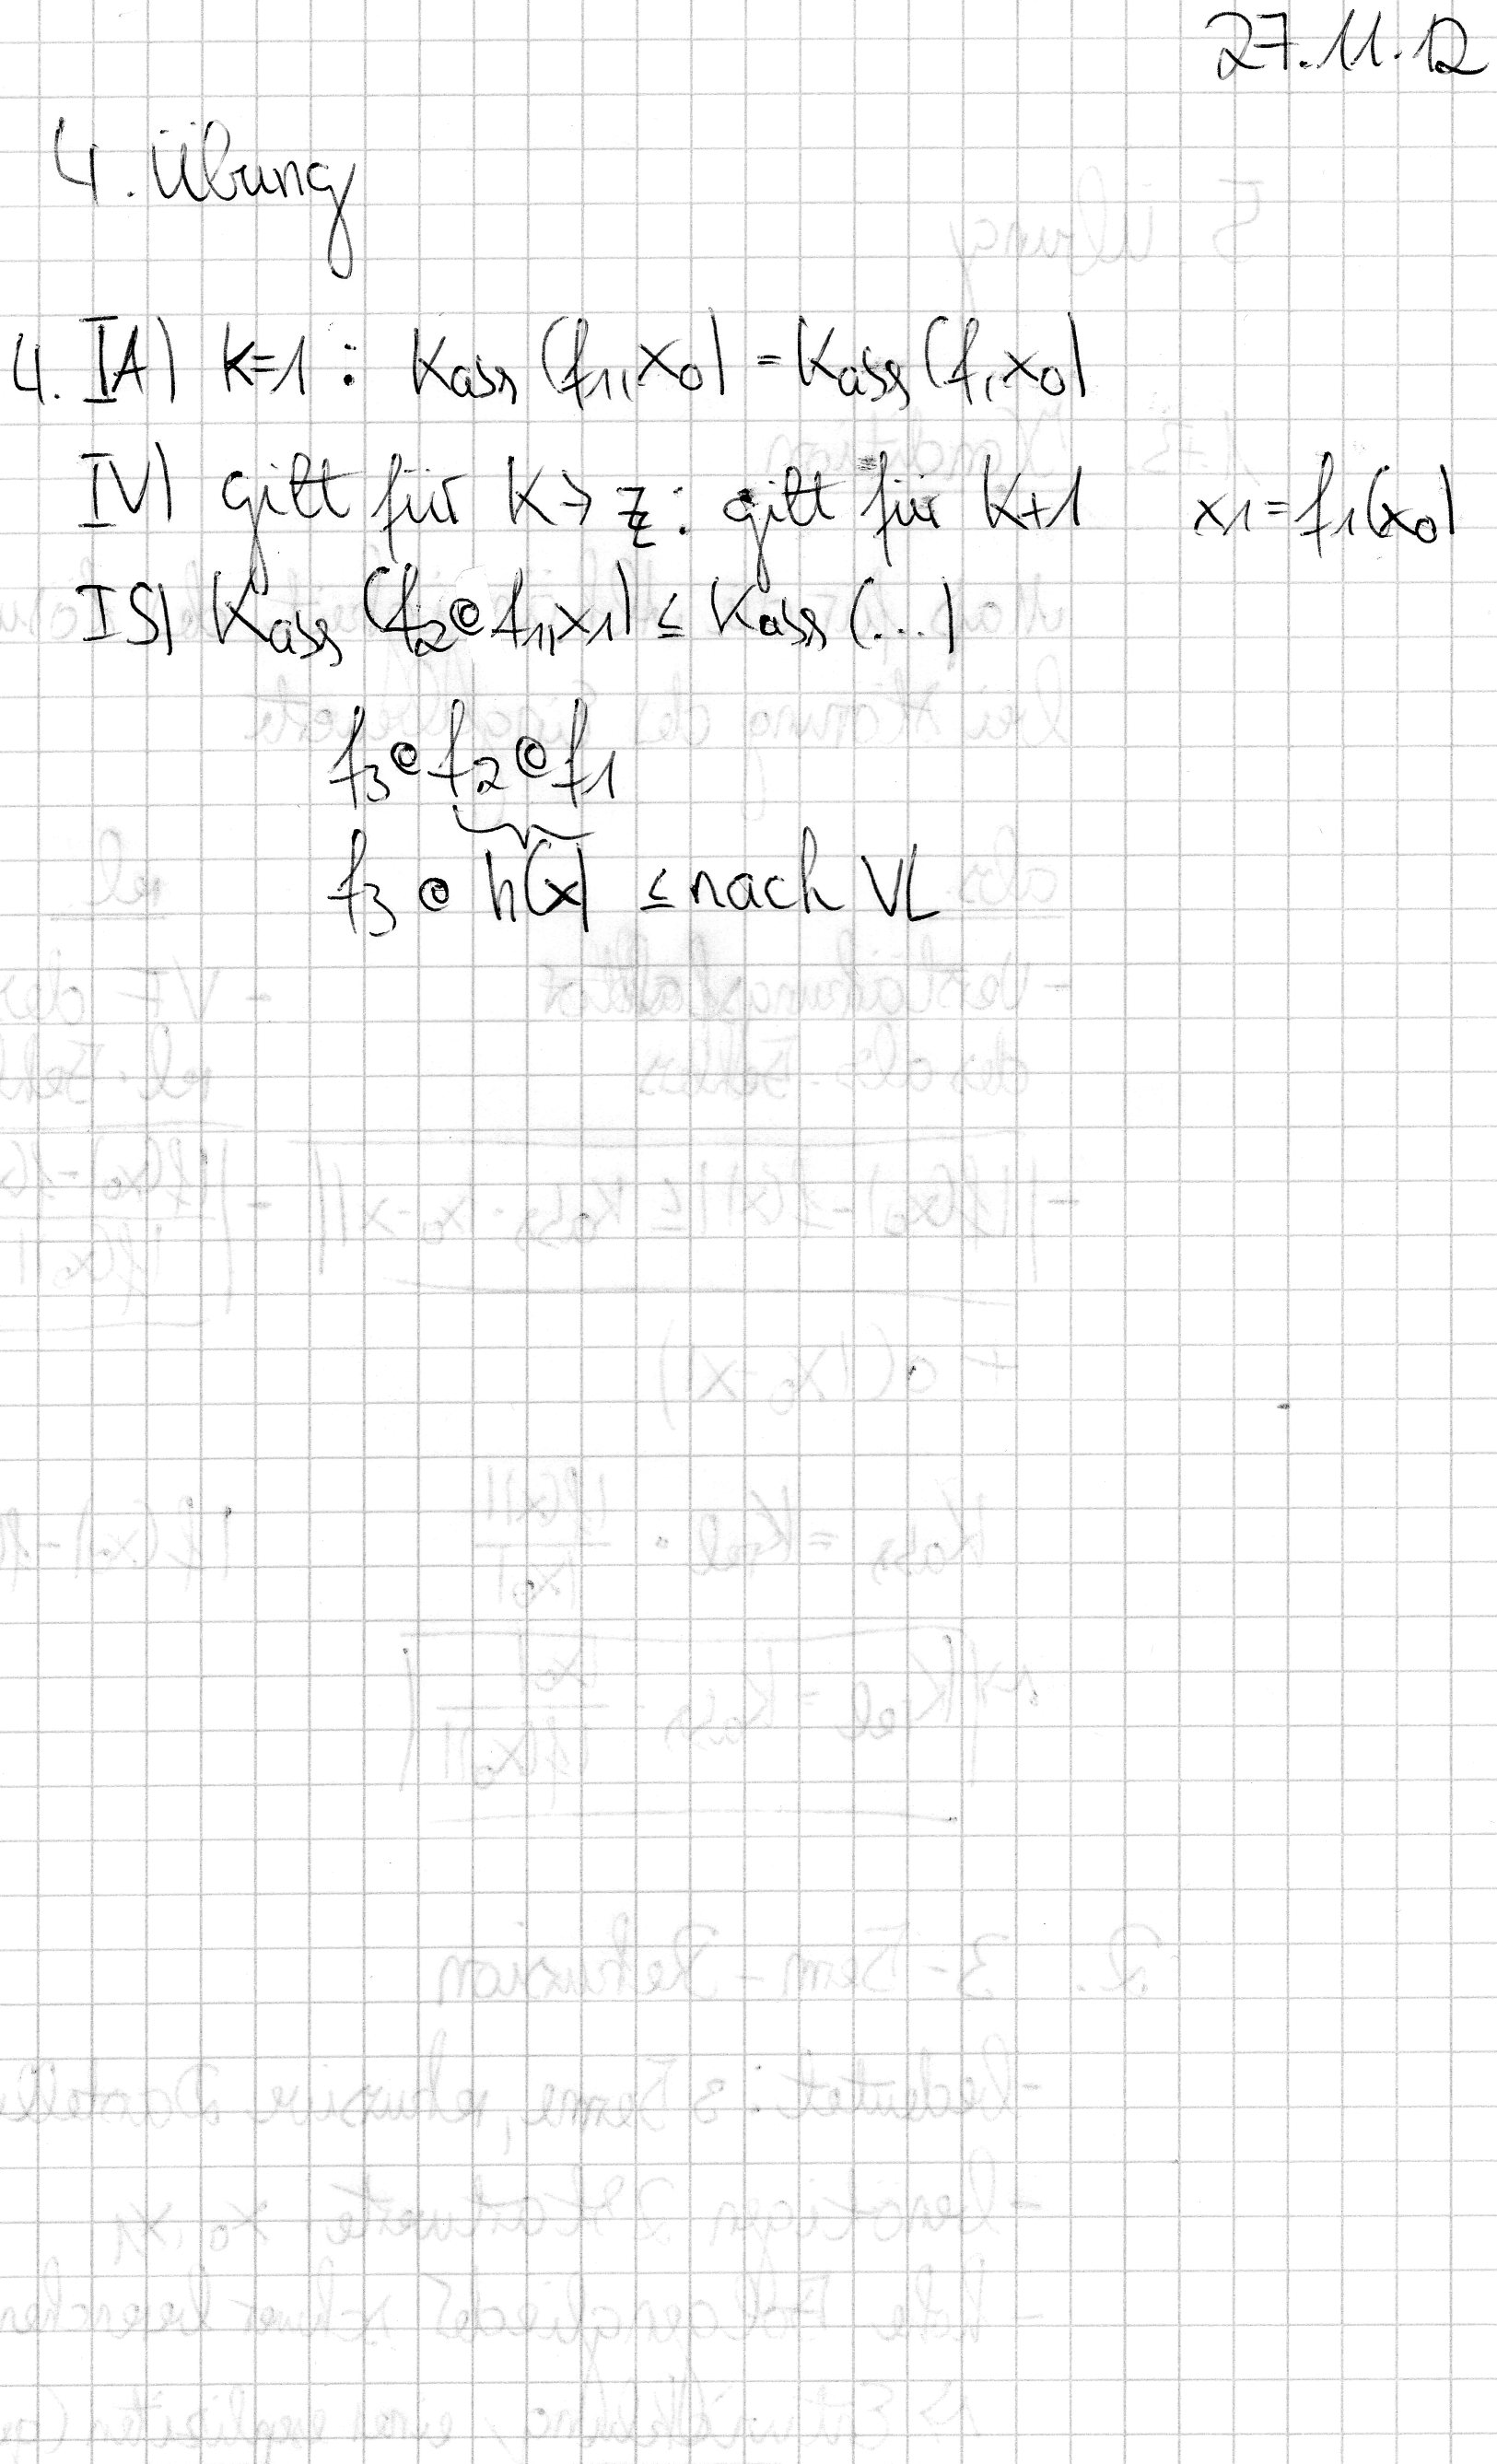 27.11.12
4. Übung
4. IA) K=1 : Kabs (f1, x0) = Kabs (f, x0)
IV) gilt für K → z: gilt für K+1 x1 = f1(x0)
IS) Kabs (f2 ∘ f1, x1) ≤ Kabs (...)
f3 ∘ f2 ∘ f1
f3 ∘ h(x) ≤ nach VL